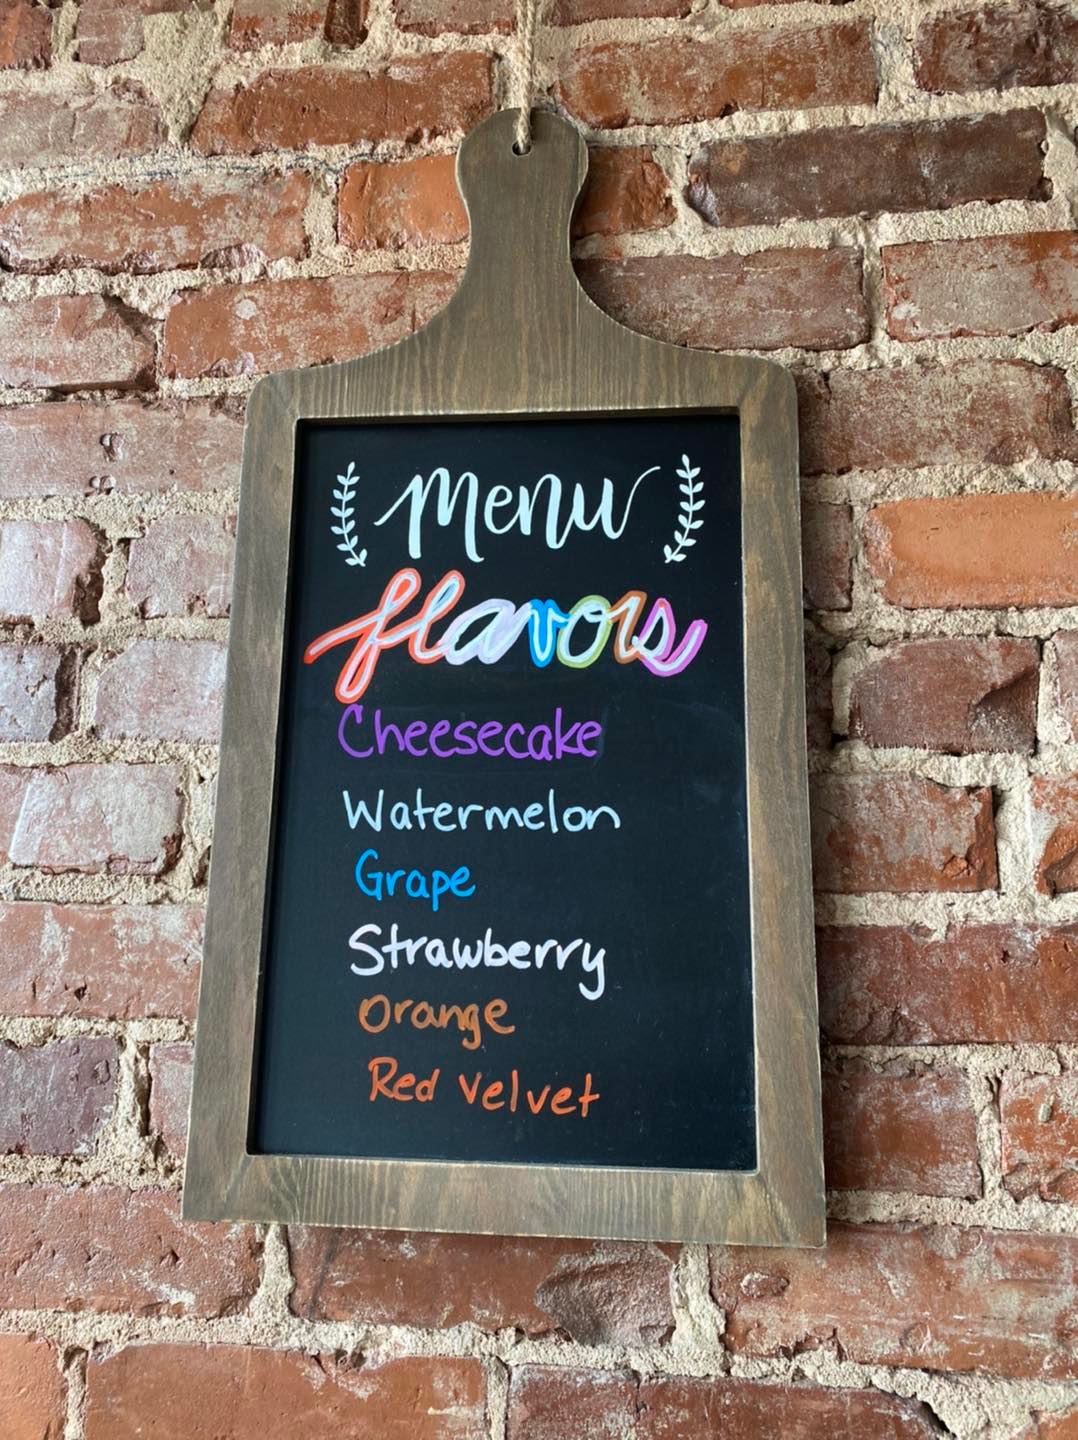 Menu
flavors
Cheesecake
Watermelon
Grape
Strawberry
Orange
Red Velvet